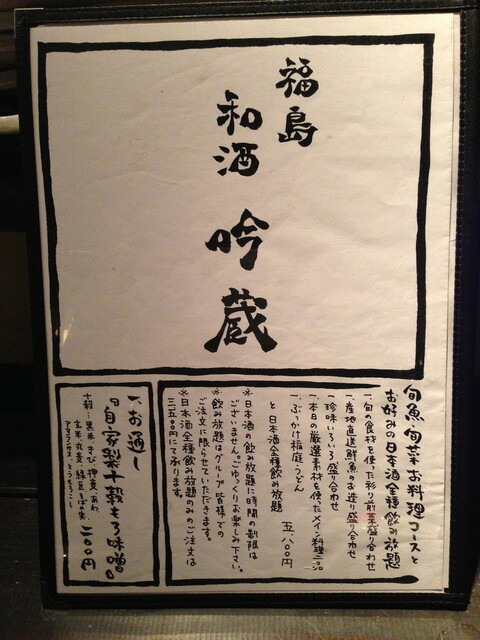 福島
和酒
吟蔵
旬魚・旬菜お料理コースと
お好みの日本酒全種飲み放題
一、旬の食材を使った彩り前菜盛り合わせ
一、産地直送鮮魚のお造り盛り合わせ
一、珍味いろいろ盛り合わせ
一、本日の厳選素材を使ったメイン料理二品
一、ぶっかけ稲庭うどん
と日本酒全種飲み放題
五、八〇〇円
※日本酒の飲み放題に時間の制限は
ございません。ごゆっくりお楽しみ下さい。
※飲み放題はグループ皆様での
ご注文に限らせていただきます。
※日本酒全種飲み放題のみのご注文は
三五〇〇円にて承ります。
一、お通し
『自家製十穀もろ味噌』
十穀…黒米・きび・押麦・あわ、
玄米・丸麦・緑豆・そばの実、
アマランサス・とうもろこし
三〇〇円